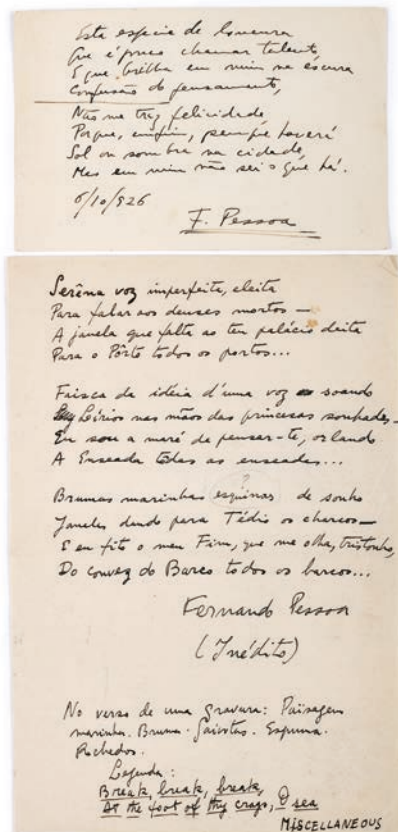 Esta espécie de loucura
Que é pouco chamar talento,
E que brilha em mim na escura
Confusão do pensamento,
Não me traz felicidade,
Porque, emfim, sempre haverá
Sol ou sombra na cidade,
Mas em mim não sei o que há.
6/10/926
F. Pessoa
Serêna voz imperfeita, eleita
Para falar aos deuses mortos —
A janela que falta ao teu palácio deita
Para o Pôrto todos os portos...
Faísca da idéia d'uma voz soando
Lírios nas mãos das princesas sonhadas —
Eu sou a maré de pensar-te, orlando
A Enseada todas as enseadas...
Brumas marinhas esquinas de sonho
?
Janelas dando para Tédio os charcos —
E eu fito o meu Fim, que me olha, tristonho,
Do convez do Barco todos os barcos...
Fernando Pessoa
(Inédito)
No verso de uma gravura: Païsagem
marinha. Bruma. Gaivotas. Espuma.
Rochedos.
Legenda:
Break, break, break,
At the foot of thy crags, O sea
MISCELLANEOUS